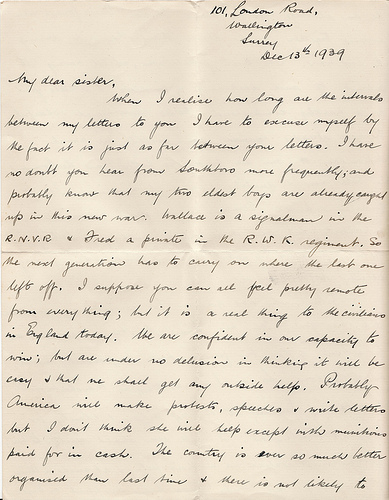 101, London Road,
Wallington
Surrey
Dec 13th 1939
My dear sister,
When I realise how long are the intervals
between my letters to you I have to excuse myself by
the fact it is just as far between your letters. I have
no doubt you hear from Southboro more frequently; and
probably know that my two eldest boys are already caught
up in this new war. Wallace is a signalman in the
R.N.V.R & Fred a private in the R.W.K. regiment. So
the next generation has to carry on where the last one
left off. I suppose you can all feel pretty remote
from everything; but it is a real thing to the civilians
in England today. We are confident in our capacity to
win; but are under no delusion in thinking it will be
easy & that we shall get any outside help. Probably
America will make protests, speeches & write letters
but I don't think she will help except with munitions
paid for in cash. The country is ever so much better
organised than last time & there is not likely to